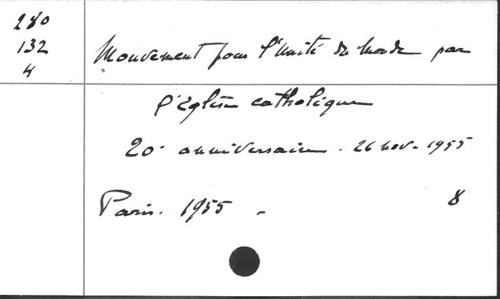 280
132
4
Mouvement pour l'Unité du Monde par
l'Eglise catholique
20e anniversaire. 26 nov. 1955
Paris. 1955 -
8